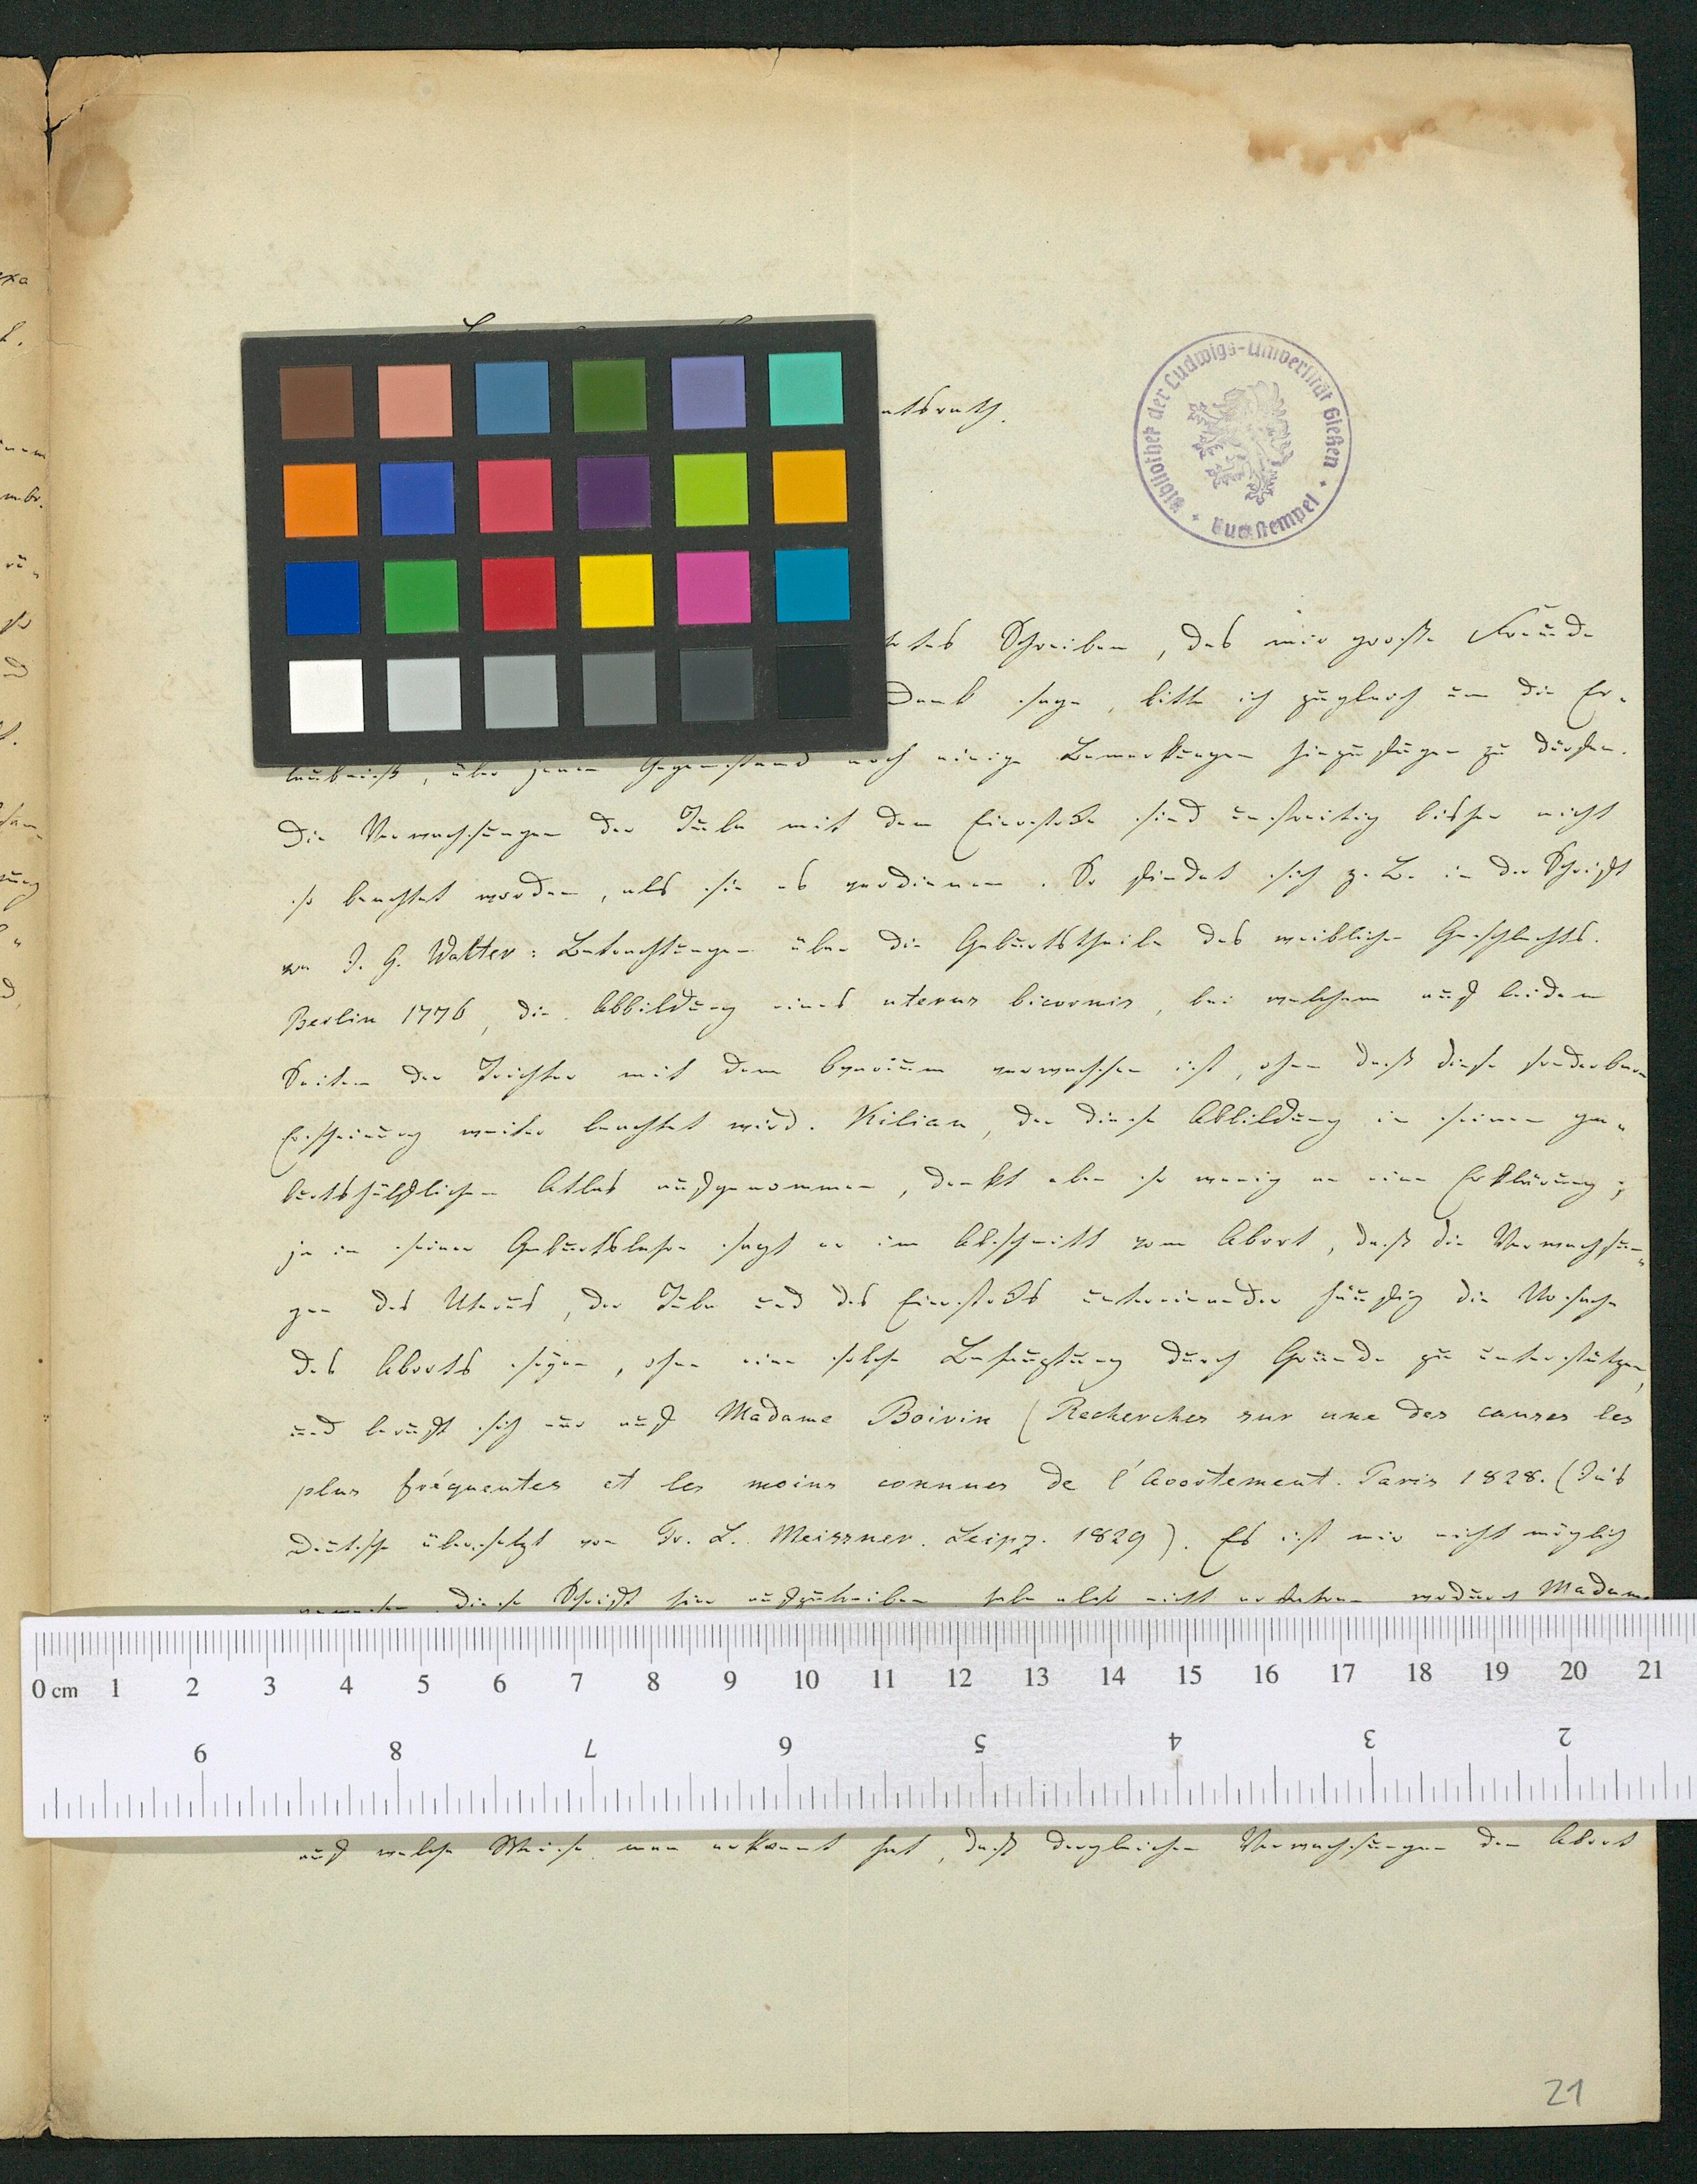 Bibliothek der Ludwigs-Universität Gießen
Buchstempel
Schreiben, das mir große Freude
Dank sage, bitte ich zugleich um die Er-
laubniß, über jenen Gegenstand noch einige Bemerkungen hinzufügen zu dürfen.
Die Verwachsungen der Tube mit dem Eierstocke sind unstreitig bisher nicht
so beachtet worden, als sie es verdienen. So findet sich z. B. in der Schrift
von J. G. Walter: Betrachtungen über die Geburtstheile des weiblichen Geschlechts.
Berlin 1776, die Abbildung eines uterus bicornis, bei welchem auf beiden
Seiten der Trichter mit dem Ovarium verwachsen ist, ohne daß diese sonderbare
Erscheinung weiter beachtet wird. Kilian, der diese Abbildung in seinen ge-
burtshülflichen Atlas aufgenommen, denkt eben so wenig an eine Erklärung;
ja in seiner Geburtslehre sagt er im Abschnitt vom Abort, daß die Verwachsun-
gen des Uterus, der Tube und des Eierstocks untereinander häufig die Ursache
des Aborts seyen, ohne eine solche Behauptung durch Gründe zu unterstützen,
und beruft sich nur auf Madame Boivin (Recherches sur une des causes les
plus fréquentes et les moins connues de l'Avortement. Paris 1828. (Ins
Deutsche übersetzt von Fr. L. Meissner. Leipz. 1829). Es ist mir nicht möglich
gewesen, diese Schrift hier aufzutreiben, habe also nicht erfahren, wodurch Madame
auf welche Weise man erkannt hat, daß dergleichen Verwachsungen den Abort
21
0 cm 1 2 3 4 5 6 7 8 9 10 11 12 13 14 15 16 17 18 19 20 21
9 8 7 6 5 4 3 2